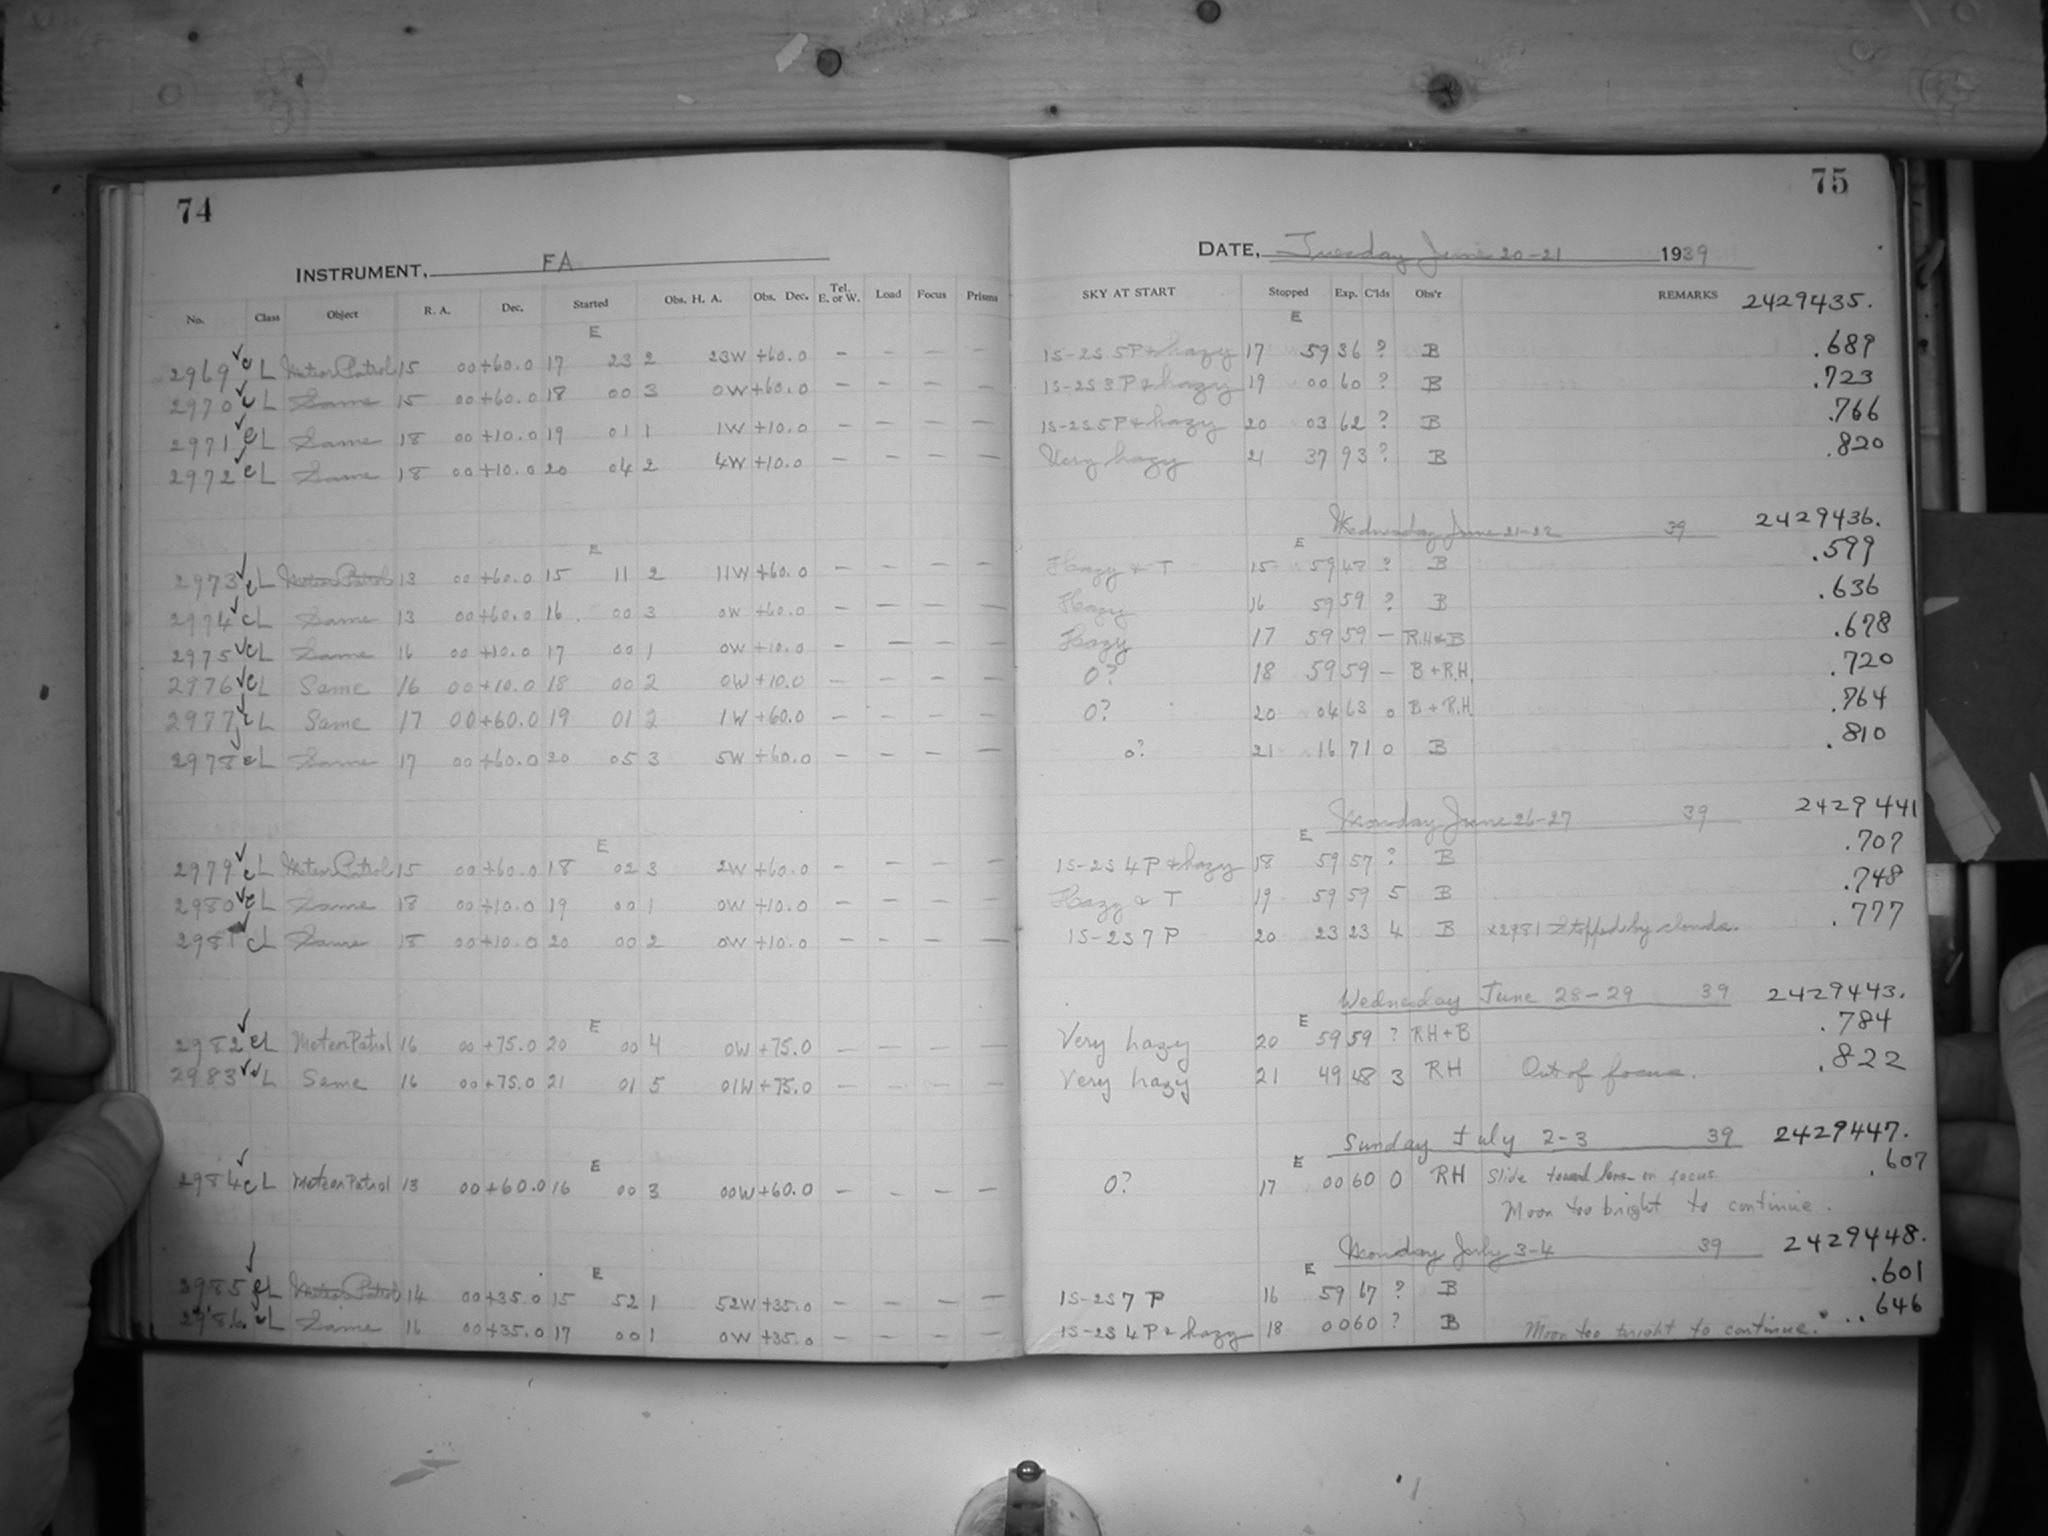 74
INSTRUMENT, FA
No. Class Object R. A. Dec. Started Obs. H. A. Obs. Dec. Tel. E. or W. Load Focus Prisms
E
2969 cL Meteor Patrol 15 00 +60.0 17 23 2 23W +60.0 – – – –
2970 cL Same 15 00 +60.0 18 00 3 0W +60.0 – – – –
2971 cL Same 18 00 +10.0 19 01 1 1W +10.0 – – – –
2972 cL Same 18 00 +10.0 20 04 2 4W +10.0 – – – –
E
2973 cL Meteor Patrol 13 00 +60.0 15 11 2 11W +60.0 – – – –
2974 cL Same 13 00 +60.0 16 00 3 0W +60.0 – – – –
2975 cL Same 16 00 +10.0 17 00 1 0W +10.0 – – – –
2976 cL Same 16 00 +10.0 18 00 2 0W +10.0 – – – –
2977 cL Same 17 00 +60.0 19 01 2 1W +60.0 – – – –
2978 cL Same 17 00 +60.0 20 05 3 5W +60.0 – – – –
E
2979 cL Meteor Patrol 15 00 +60.0 18 02 3 2W +60.0 – – – –
2980 cL Same 18 00 +10.0 19 00 1 0W +10.0 – – – –
2981 cL Same 18 00 +10.0 20 00 2 0W +10.0 – – – –
E
2982 cL Meteor Patrol 16 00 +75.0 20 00 4 0W +75.0 – – – –
2983 cL Same 16 00 +75.0 21 01 5 01W +75.0 – – – –
E
2984 cL Meteor Patrol 13 00 +60.0 16 00 3 00W +60.0 – – – –
E
2985 cL Meteor Patrol 14 00 +35.0 15 52 1 52W +35.0 – – – –
2986 cL Same 16 00 +35.0 17 00 1 0W +35.0 – – – –
75
DATE, Tuesday June 20-21 1939
SKY AT START Stopped Exp. C'lds Obs'r REMARKS 2429435.
E
1S-2S 5P & hazy 17 59 36 ? B .689
1S-2S 8P & hazy 19 00 60 ? B .723
1S-2S 5P & hazy 20 03 62 ? B .766
Very hazy 21 37 93 ? B .820
Wednesday June 21-22 39 2429436.
E
Hazy & T 15 59 47 ? B .599
Hazy 16 59 59 ? B .636
Hazy 17 59 59 – R.H & B .678
0? 18 59 59 – B + R.H. .720
0? 20 04 63 0 B + R.H .764
0? 21 16 71 0 B .810
Monday June 26-27 39 2429441
E
1S-2S 4P & hazy 18 59 57 ? B .707
Hazy & T 19 59 59 5 B .748
1S-2S 7P 20 23 23 4 B x2981 Stopped by clouds. .777
Wednesday June 28-29 39 2429443.
E
Very hazy 20 59 59 ? RH + B .784
Very hazy 21 49 48 3 RH Out of focus. .822
Sunday July 2-3 39 2429447.
E
0? 17 00 60 0 RH Slide toward lens in focus. .607
Moon too bright to continue.
Monday July 3-4 39 2429448.
E
1S-2S 7P 16 59 67 ? B .601
1S-2S 4P & hazy 18 00 60 ? B Moon too bright to continue. .646